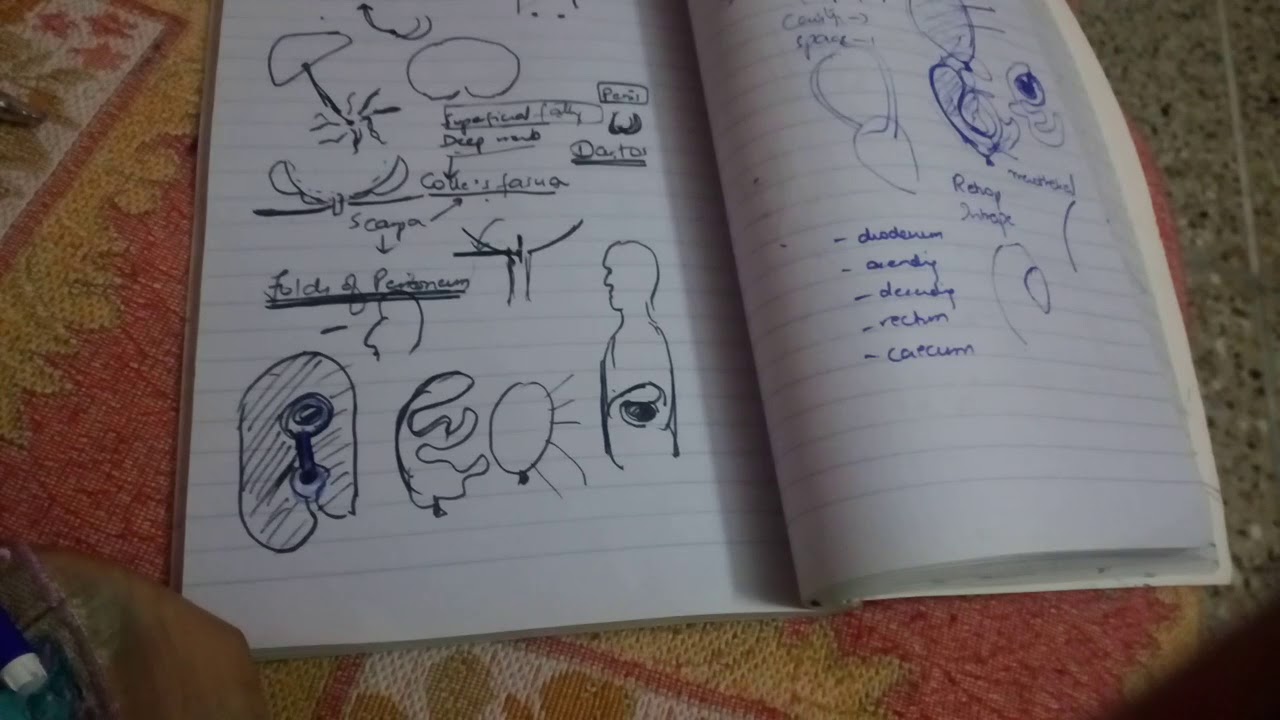 Superficial fatty
Deep memb
Colle's fascia
Scarpa
Penis
Dartos
Folds of Peritoneum
Cavity →
space →
Retrop
Intrape
- duodenum
- ascending
- descending
- rectum
- caecum